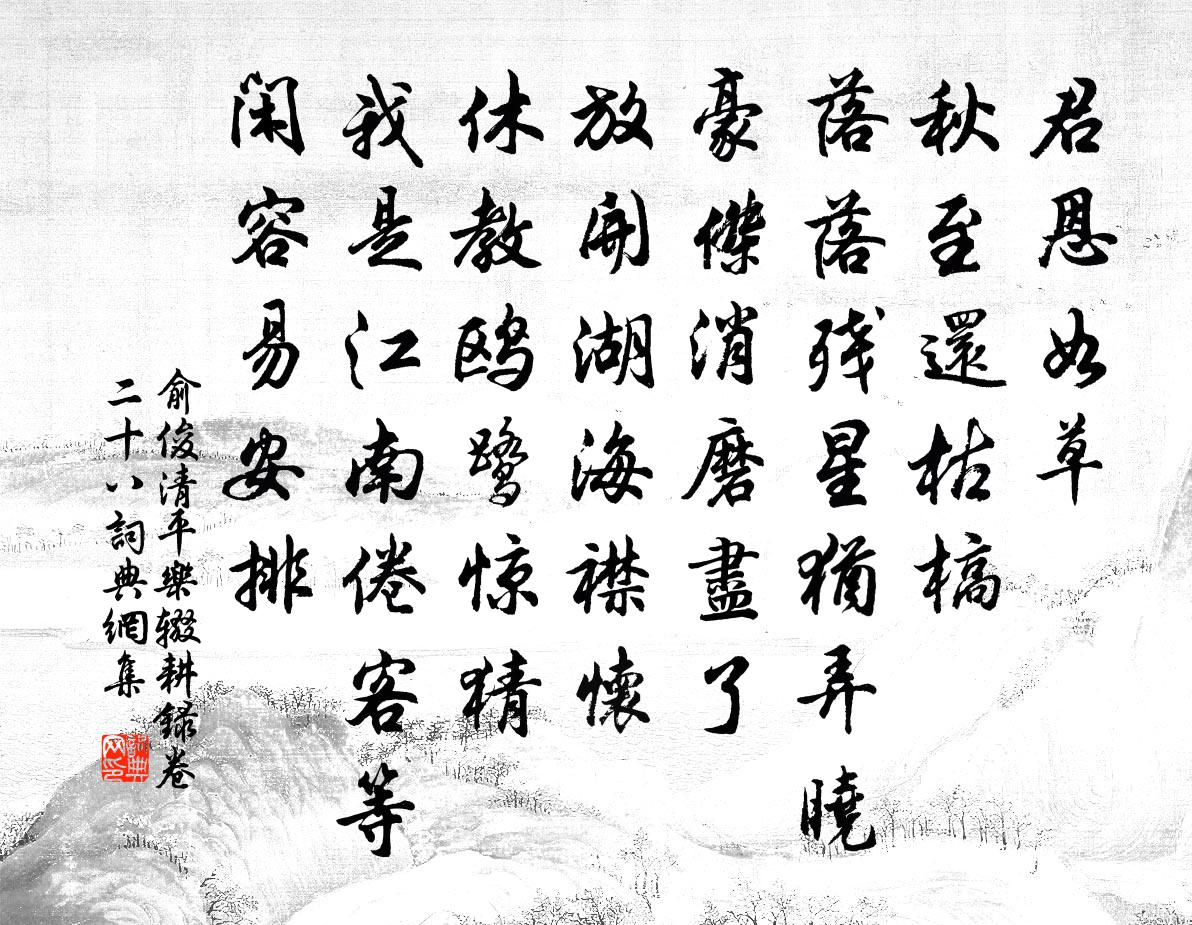 君恩如草
秋至還枯槁
落落残星猶弄曉
豪傑消磨盡了
放開湖海襟懷
休教鸥鹭惊猜
我是江南倦客等
閑容易安排
俞俊清平樂辍耕録卷
二十八詞典網集
詞典网印